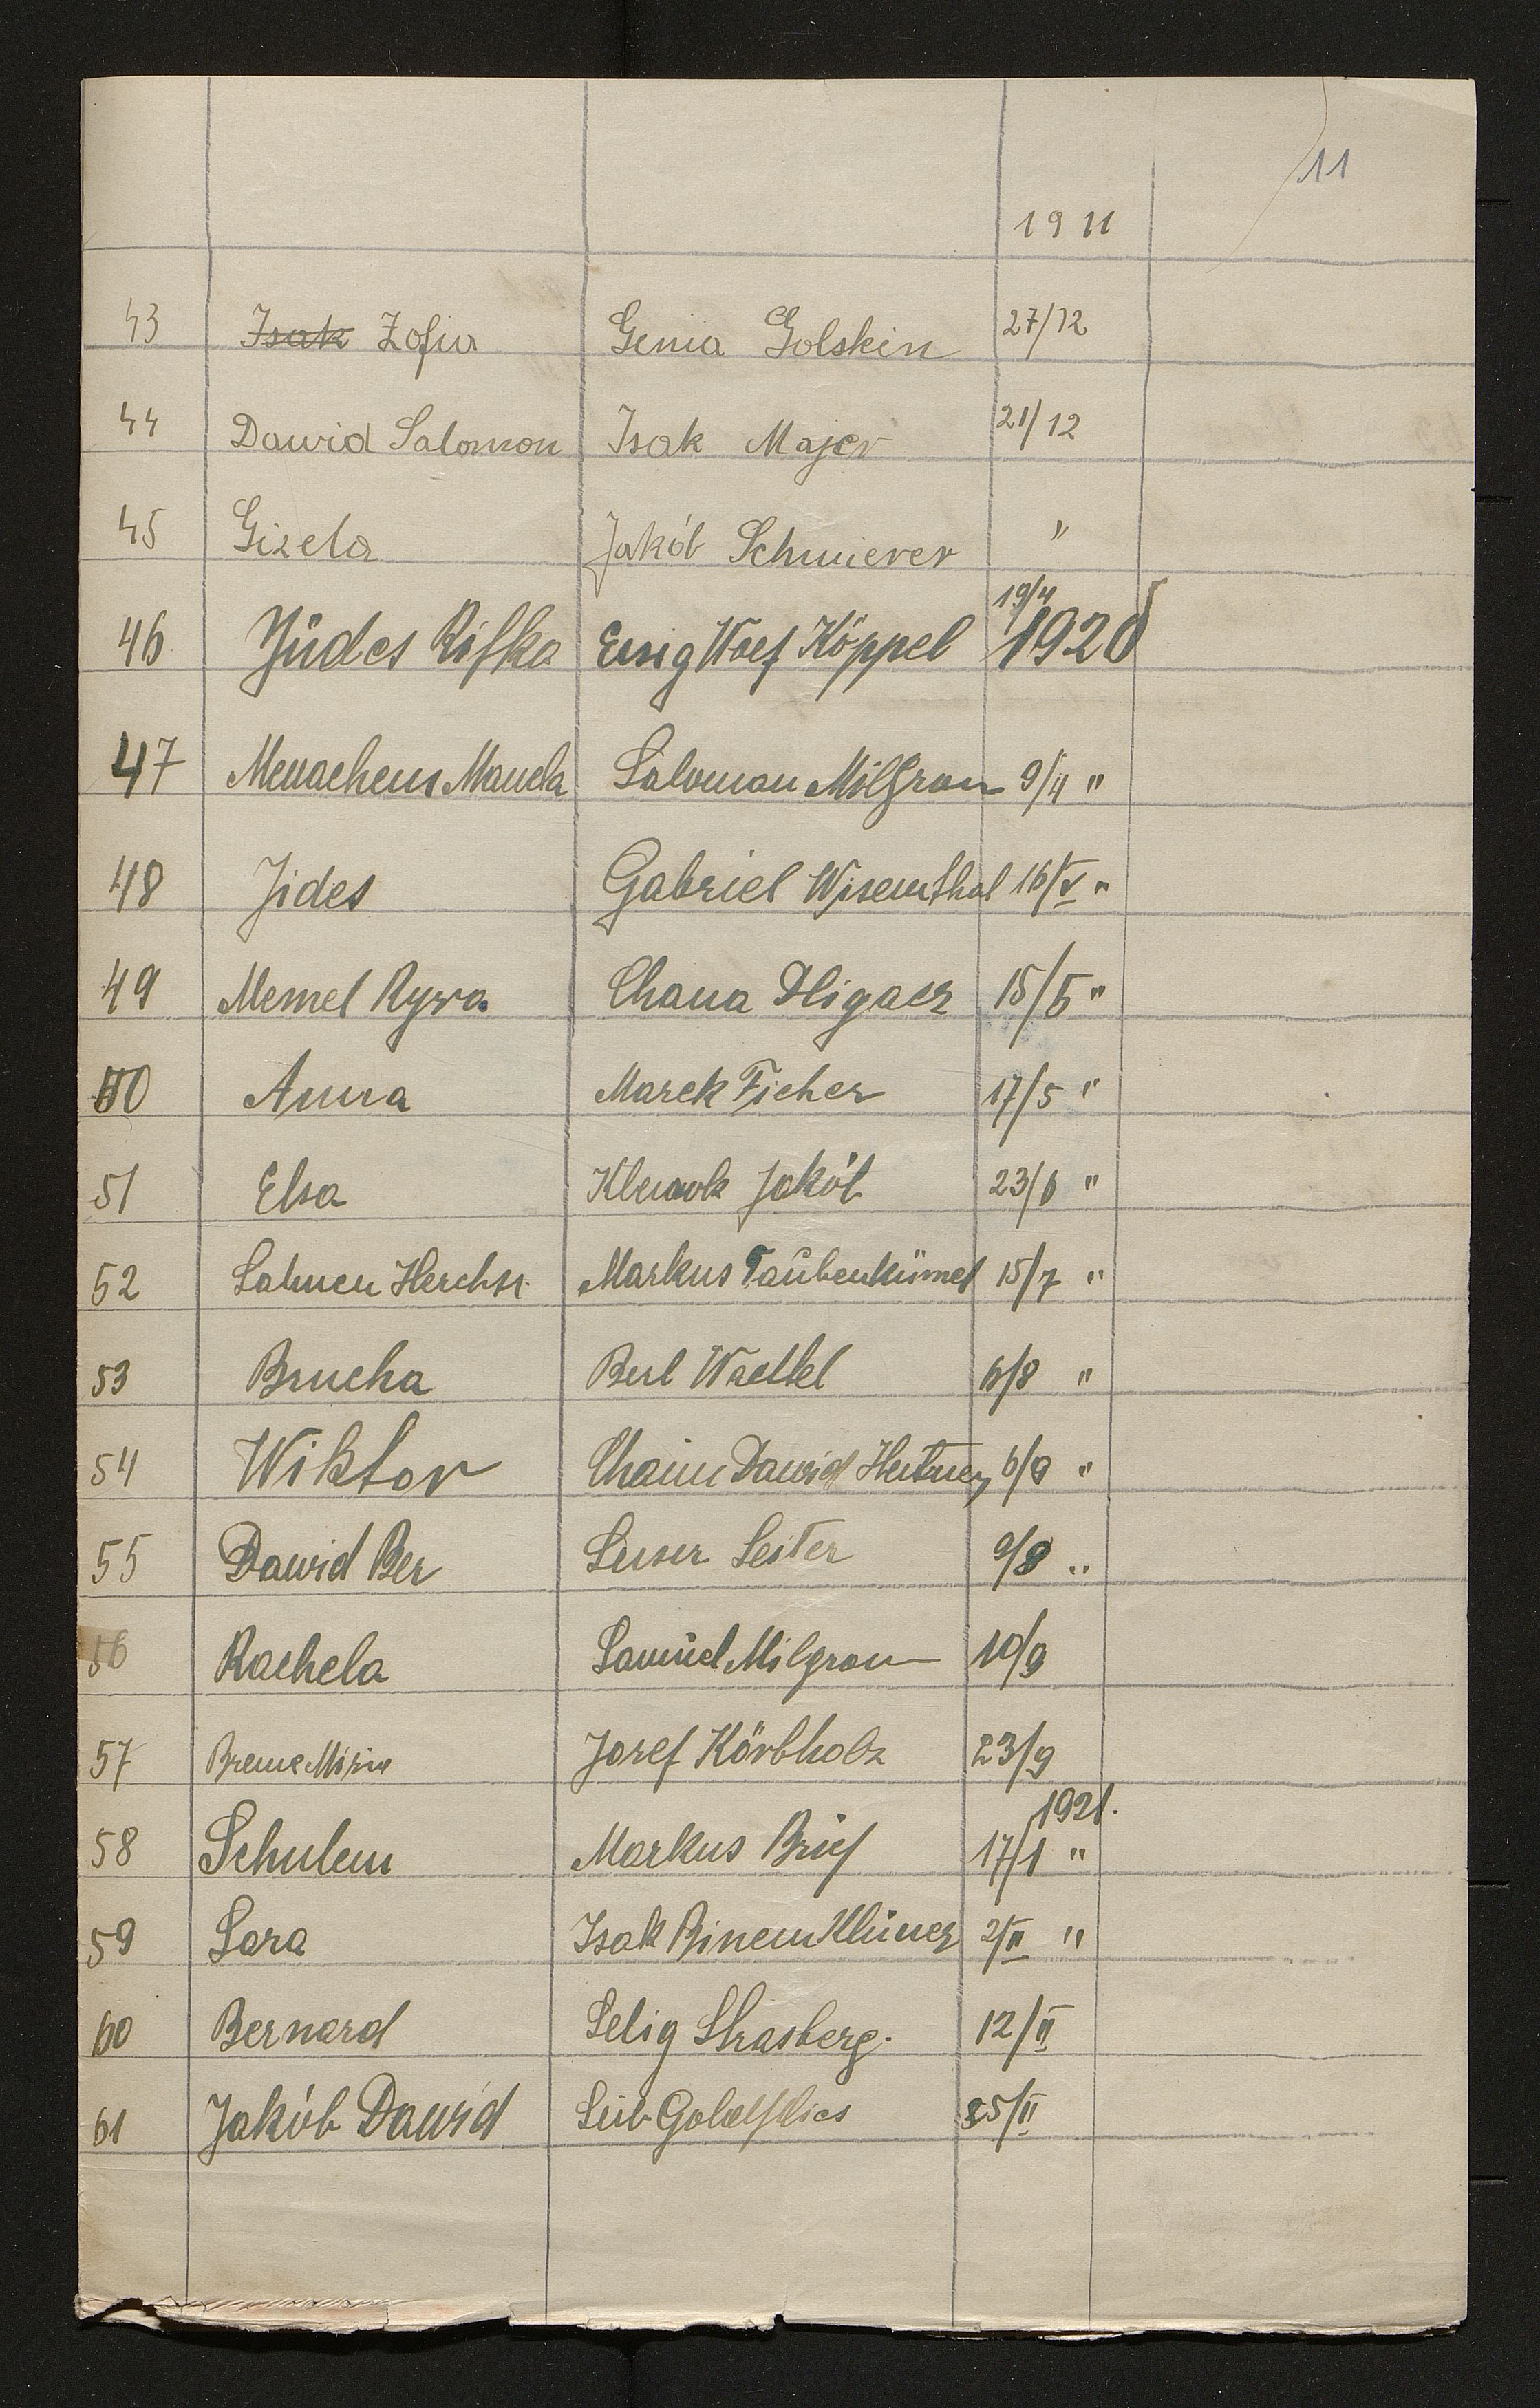 11
1911
43 Isak Zofia Genia Golskin 27/12
44 Dawid Salomon Isak Majer 21/12
45 Gizela Jakób Schmierer "
46 Jüdes Rifka Eisig Wolf Köppel 19/4 1920
47 Menachem Manela Saloman Milgrom 9/4 "
48 Jides Gabriel Wisenthal 16/V "
49 Memel Rywa Chana 15/5 "
50 Anna Marek Ficher 17/5 "
51 Elsa Jakób 23/6 "
52 Salmen Markus 15/7 "
53 Brucha Berl 6/8 "
54 Wiktor Chaim Dawid 6/9 "
55 Dawid Ber Leiser Leiter 9/8 "
56 Rachela Samuel Milgrom 10/9
57 Josef Körbholz 23/9
1921.
58 Schulem Markus Brief 17/1 "
59 Sara Isak Binem 2/II "
60 Bernard Selig Strasberg. 12/II
61 Jakób Dawid Leib 25/II